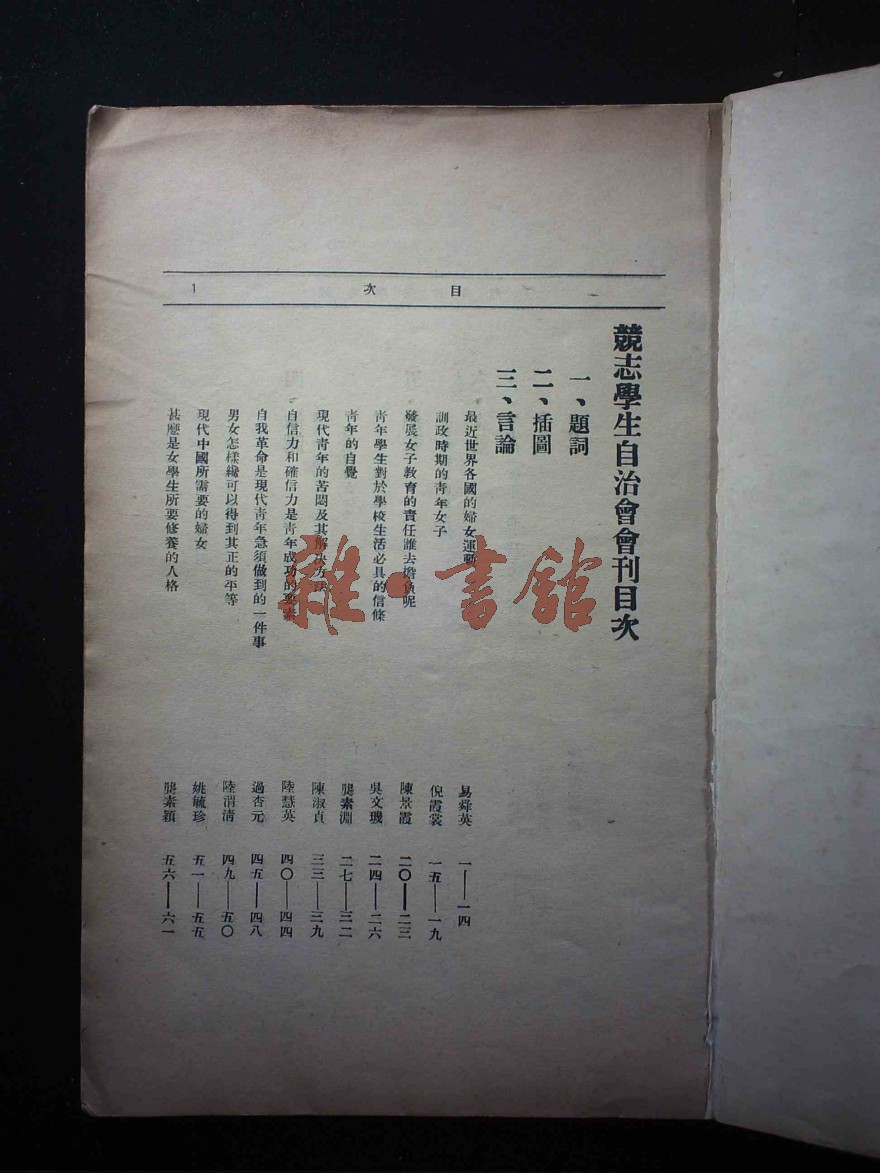 目次
1
競志學生自治會會刊目次
一、題詞
二、插圖
三、言論
最近世界各國的婦女運動 易舜英 一——一四
訓政時期的青年女子 倪霞裳 一五——一九
發展女子教育的責任誰去擔負呢 陳景霞 二〇——二三
青年學生對於學校生活必具的信條 吳文璣 二四——二六
青年的自覺 龔素淵 二七——三二
現代青年的苦悶及其解決方法 陳淑貞 三三——三九
自信力和確信力是青年成功的要素 陸慧英 四〇——四四
自我革命是現代青年急須做到的一件事 過杏元 四五——四八
男女怎樣纔可以得到其正的平等 陸渭清 四九——五〇
現代中國所需要的婦女 姚毓珍 五一——五五
甚麼是女學生所要修養的人格 龔素穎 五六——六一
雜·書館